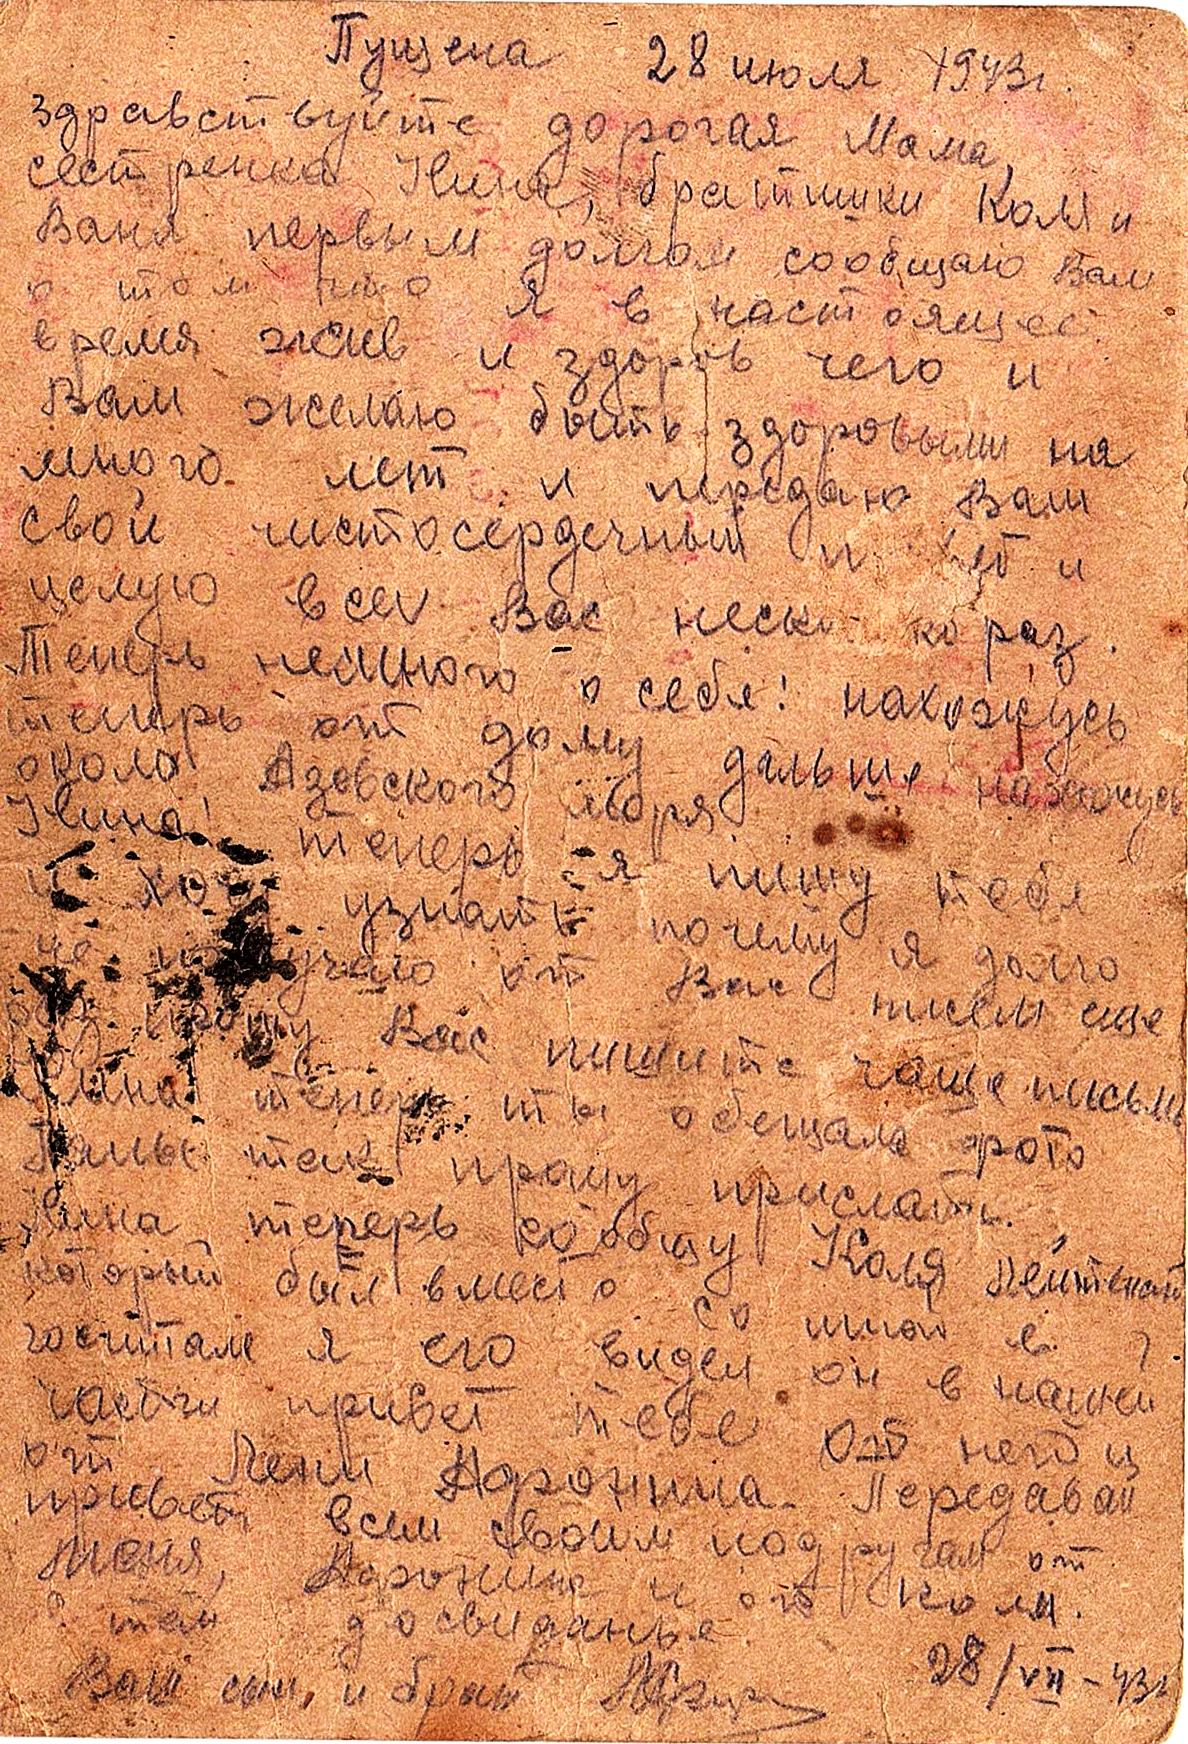 Пущена 28 июля 1943 г.
Здравствуйте дорогая Мама,
сестренка Нина, братишки Коля и
Ваня первым долгом сообщаю Вам
о том что я в настоящее
время жив и здоров чего и
Вам желаю быть здоровыми на
много лет и передаю Вам
свой чистосердечный и
целую всех Вас раз.
Теперь немного о себе! нахожусь
теперь от дому дальше нахожусь
около Азовского моря.
Нина! теперь я пишу тебе
и хочу узнать почему я долго
не получаю от Вас писем еще
раз прошу Вас пишите чаще письма
Нина теперь ты обещала фото
так прошу прислать.
Нина теперь сообщу Коля лейтенант
который был вместо со мной в
госпитале я его видел он в нашей
части привет тебе от него и
от Лени Афонина. Передавай
привет всем своим подругам от
меня, Афонина и от Коли.
тем досвиданье.
28/VII-43 г
Ваш сын и брат